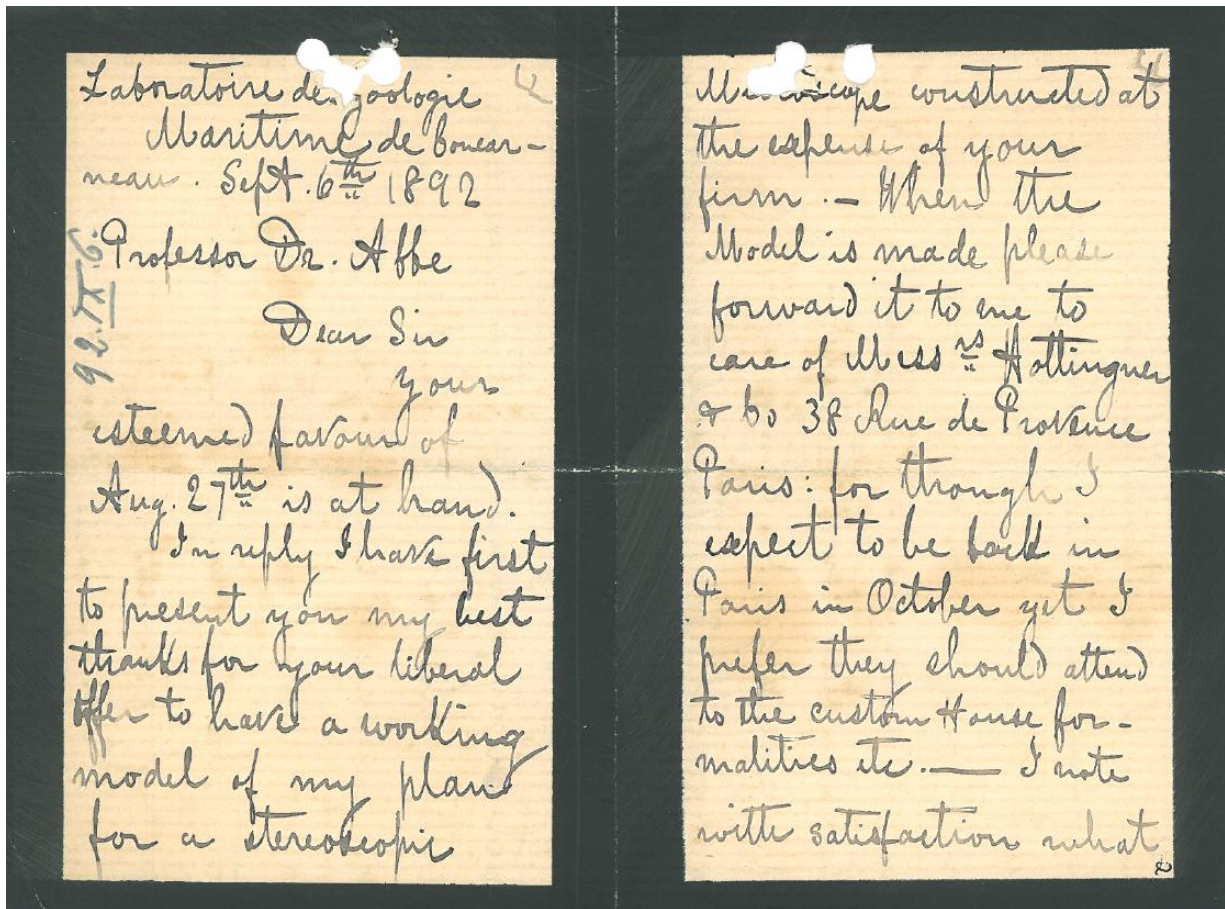 Laboratoire de Zoologie
Maritime de Concar-
neau. Sept. 6th 1892
92.IX.6.
Professor Dr. Abbe
Dear Sir
Your
esteemed favour of
Aug. 27th is at hand.
In reply I have first
to present you my best
thanks for your liberal
offer to have a working
model of my plan
for a stereoscopic
Microscope constructed at
the expense of your
firm. — When the
Model is made please
forward it to me to
care of Messrs Hottinguer
& Co 38 Rue de Provence
Paris: for though I
expect to be back in
Paris in October yet I
prefer they should attend
to the custom House for-
malities etc. — I note
with satisfaction what